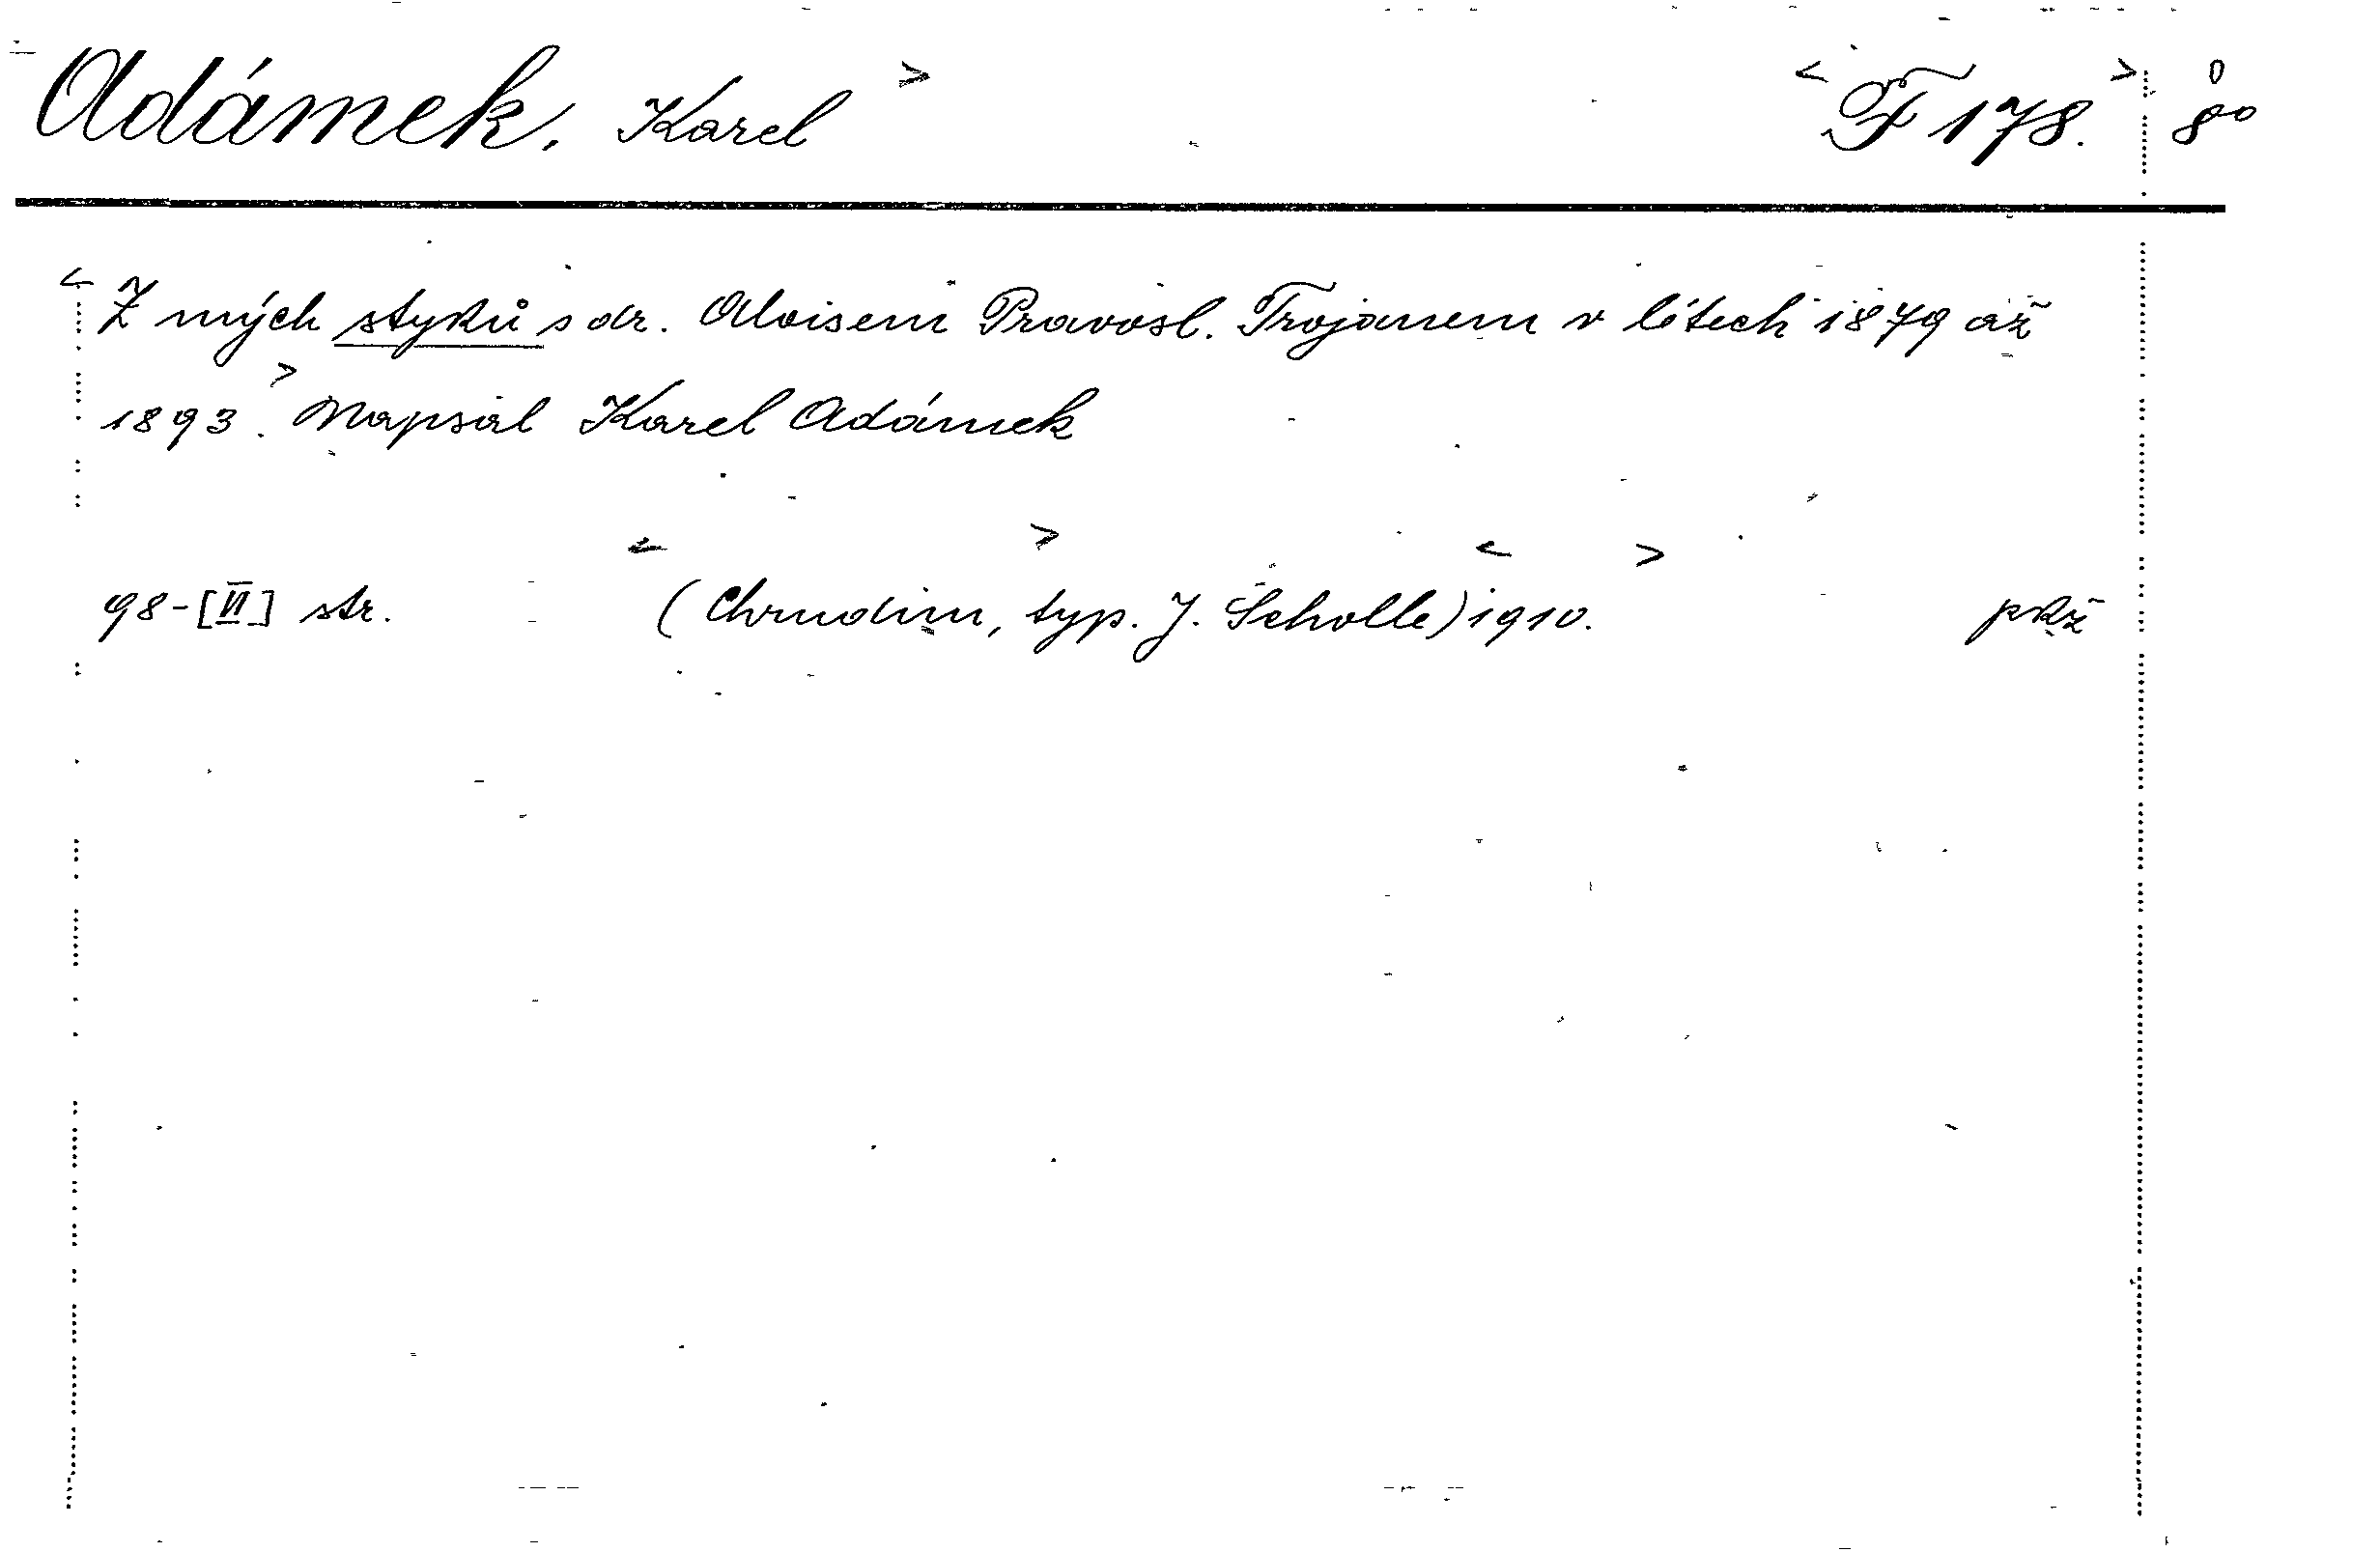 Adámek, Karel > < F 178. > 0 8°
< Z mých styků s dr. Aloisem Pravosl. Trojanem v létech 1879 až
1893. > Napsal Karel Adámek
98-[VI] str. < (Chrudim, > typ. J. Scholle) < 1910. > pkž